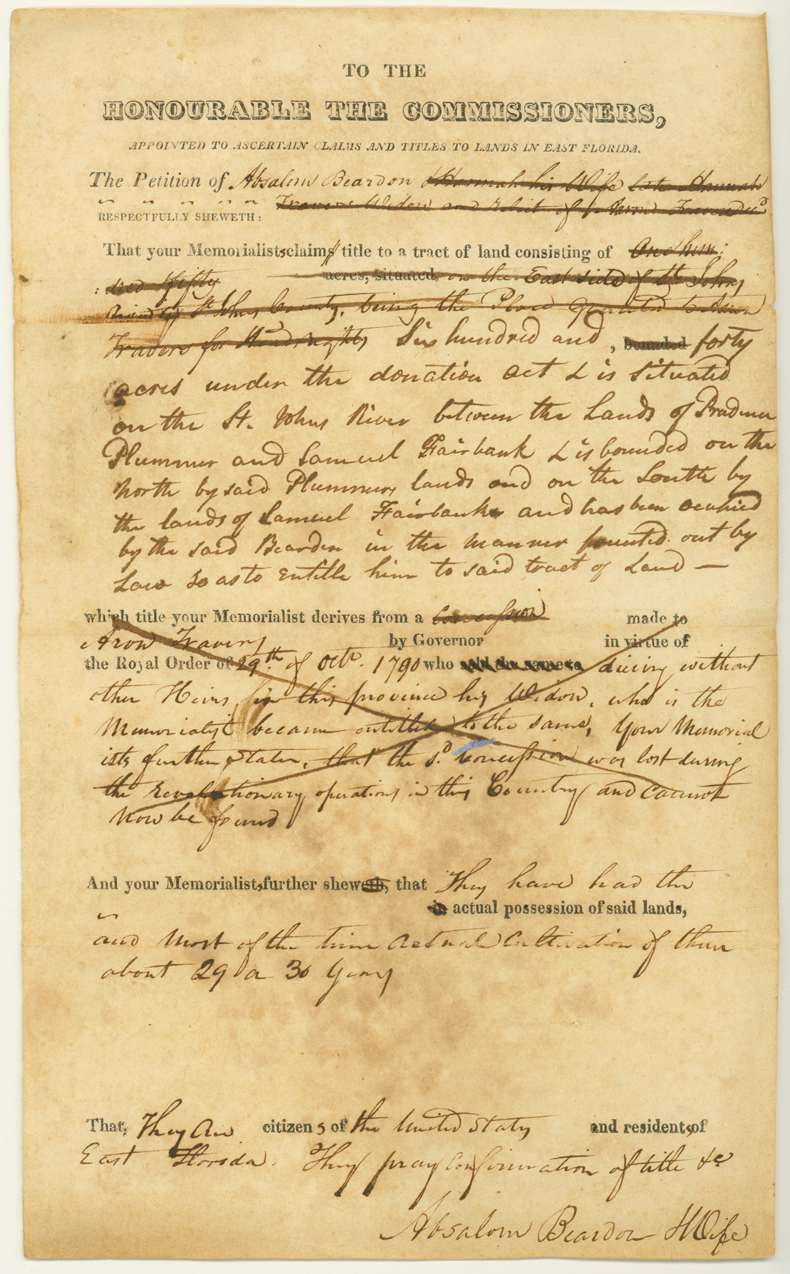 TO THE
HONOURABLE THE COMMISSIONERS,
APPOINTED TO ASCERTAIN CLAIMS AND TITLES TO LANDS IN EAST FLORIDA.
The Petition of Absalom Beardon & Hannah his Wife late Hannah
Travers Widow and Relict of Aron Travers decd
RESPECTFULLY SHEWETH:
That your Memorialists claim title to a tract of land consisting of One hun
dred fifty acres, situated on the East side of St Johns
River St Johns County, being the Place granted to Aron
Travers for Headrights Six hundred and, bounded forty
acres under the donation act & is situated
on the St. Johns River between the Lands of
Plummer and Samuel Fairbank & is bounded on the
North by said Plummers lands and on the South by
the lands of Samuel Fairbanks and has been occupied
by the said Bearden in the manner pointed out by
Law so as to entitle him to said tract of Land —
which title your Memorialist derives from a Concession made to
Aron Travers by Governor in virtue of
the Royal Order of 29th of Octr. 1790 who dieing without
other Heirs, in this province his Widow, who is the
Memorialist became entitled to the same, Your Memorial
ists further states, that the sd. Concession was lost during
the revolutionary operations in this Country and cannot
now be found
And your Memorialists, further sheweth, that They have had the
in actual possession of said lands,
and most of the time actual Cultivation of them
about 29 or 30 Years
That, They are citizens of the United States and residents, of
East Florida. They pray Confirmation of title &c
Absalom Beardon & Wife